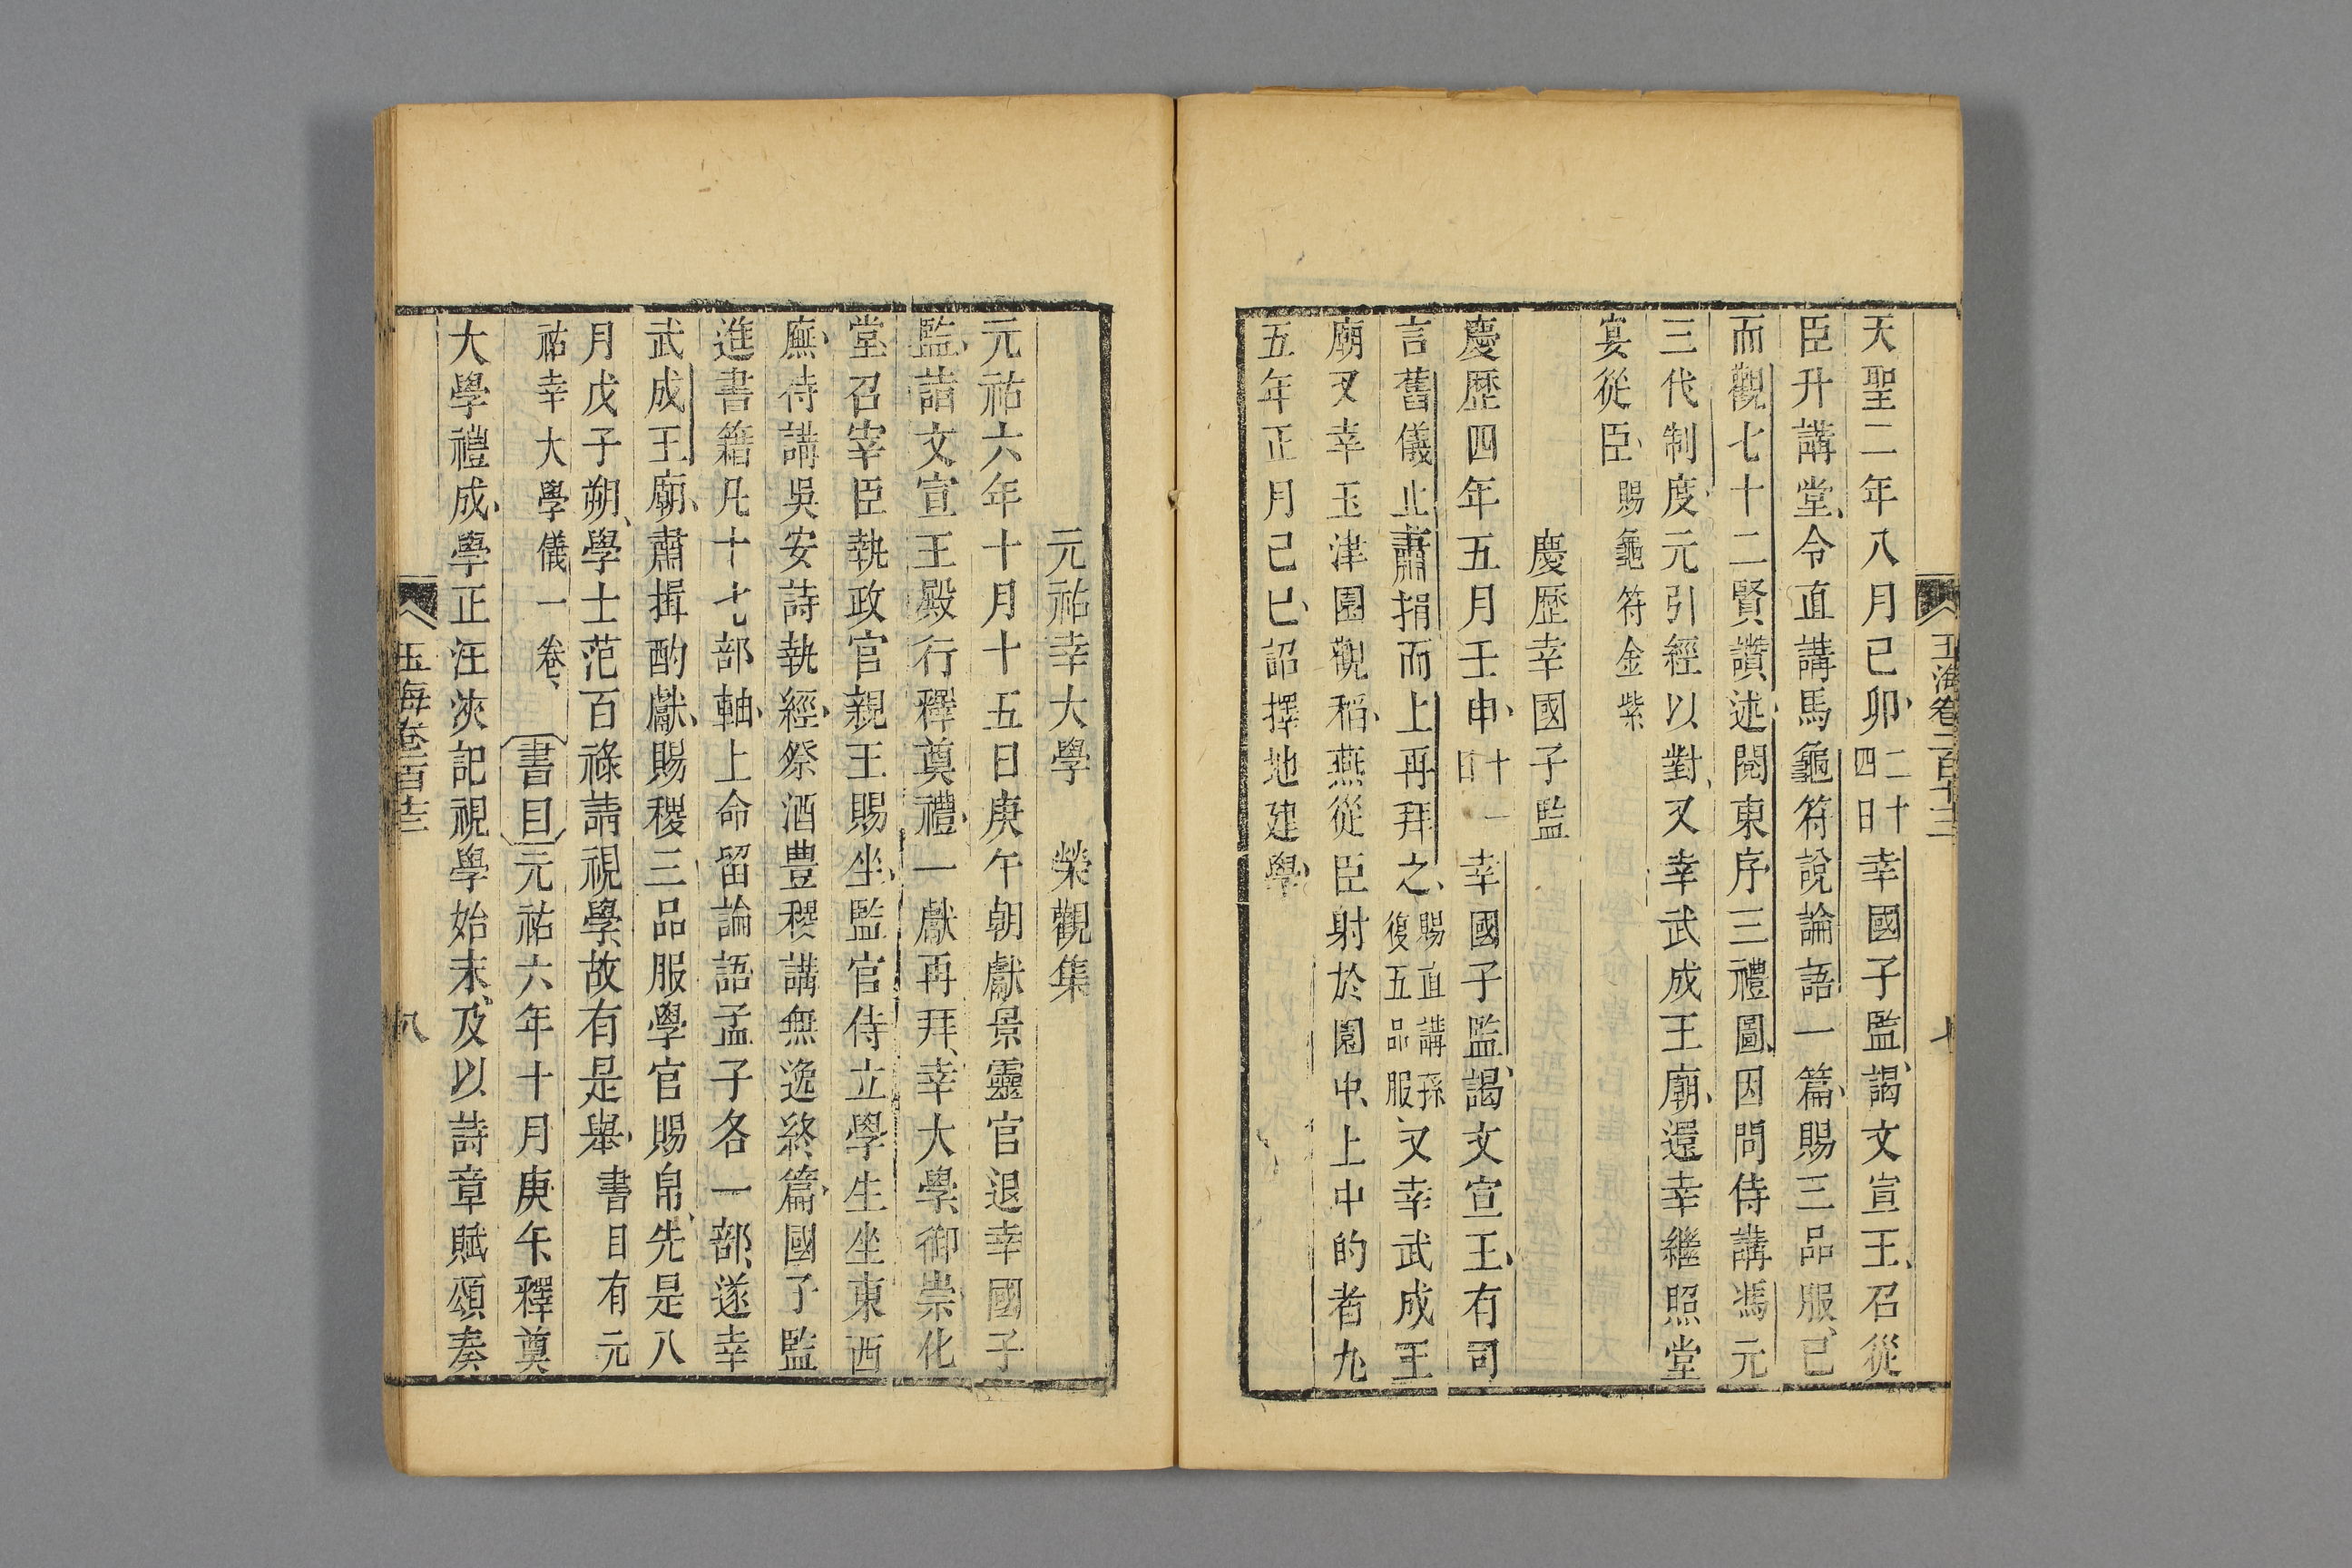 玉海卷二百十三
七
天聖二年八月己卯二十四日幸國子監謁文宣王召從
臣升講堂令直講馬龜符說論語一篇賜三品服已
而觀七十二賢讚述閱東序三禮圖因問侍講馮元
三代制度元引經以對又幸武成王廟還幸繼照堂
宴從臣賜龜符金紫
慶歷幸國子監
慶歷四年五月壬申廿一日幸國子監謁文宣王有司
言舊儀止肅揖而上再拜之賜直講孫復五品服又幸武成王
廟又幸玉津園觀稻燕從臣射於園中上中的者九
五年正月己巳詔擇地建學
元祐幸大學 榮觀集
元祐六年十月十五日庚午朝獻景靈官退幸國子
監詣文宣王殿行釋奠禮一獻再拜幸大學御崇化
堂召宰臣執政官親王賜坐監官侍立學生坐東西
廡侍講吳安詩執經祭酒豊稷講無逸終篇國子監
進書籍凡十七部軸上命留論語孟子各一部遂幸
武成王廟肅揖酌獻賜稷三品服學官賜帛先是八
月戊子朔學士范百祿請視學故有是舉書目有元
祐幸大學儀一卷書目元祐六年十月庚午釋奠
大學禮成學正汪浹記視學始末及以詩章賦頌奏
玉海卷一百十三
八